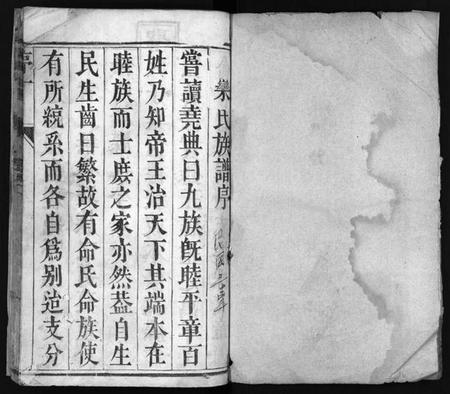 欒氏族譜序
嘗讀堯典曰九族旣睦平章百
姓乃知帝王治天下其端本在
睦族而士庶之家亦然葢自生
民生齒日繁故有命氏命族使
有所統系而各自爲別迨支分